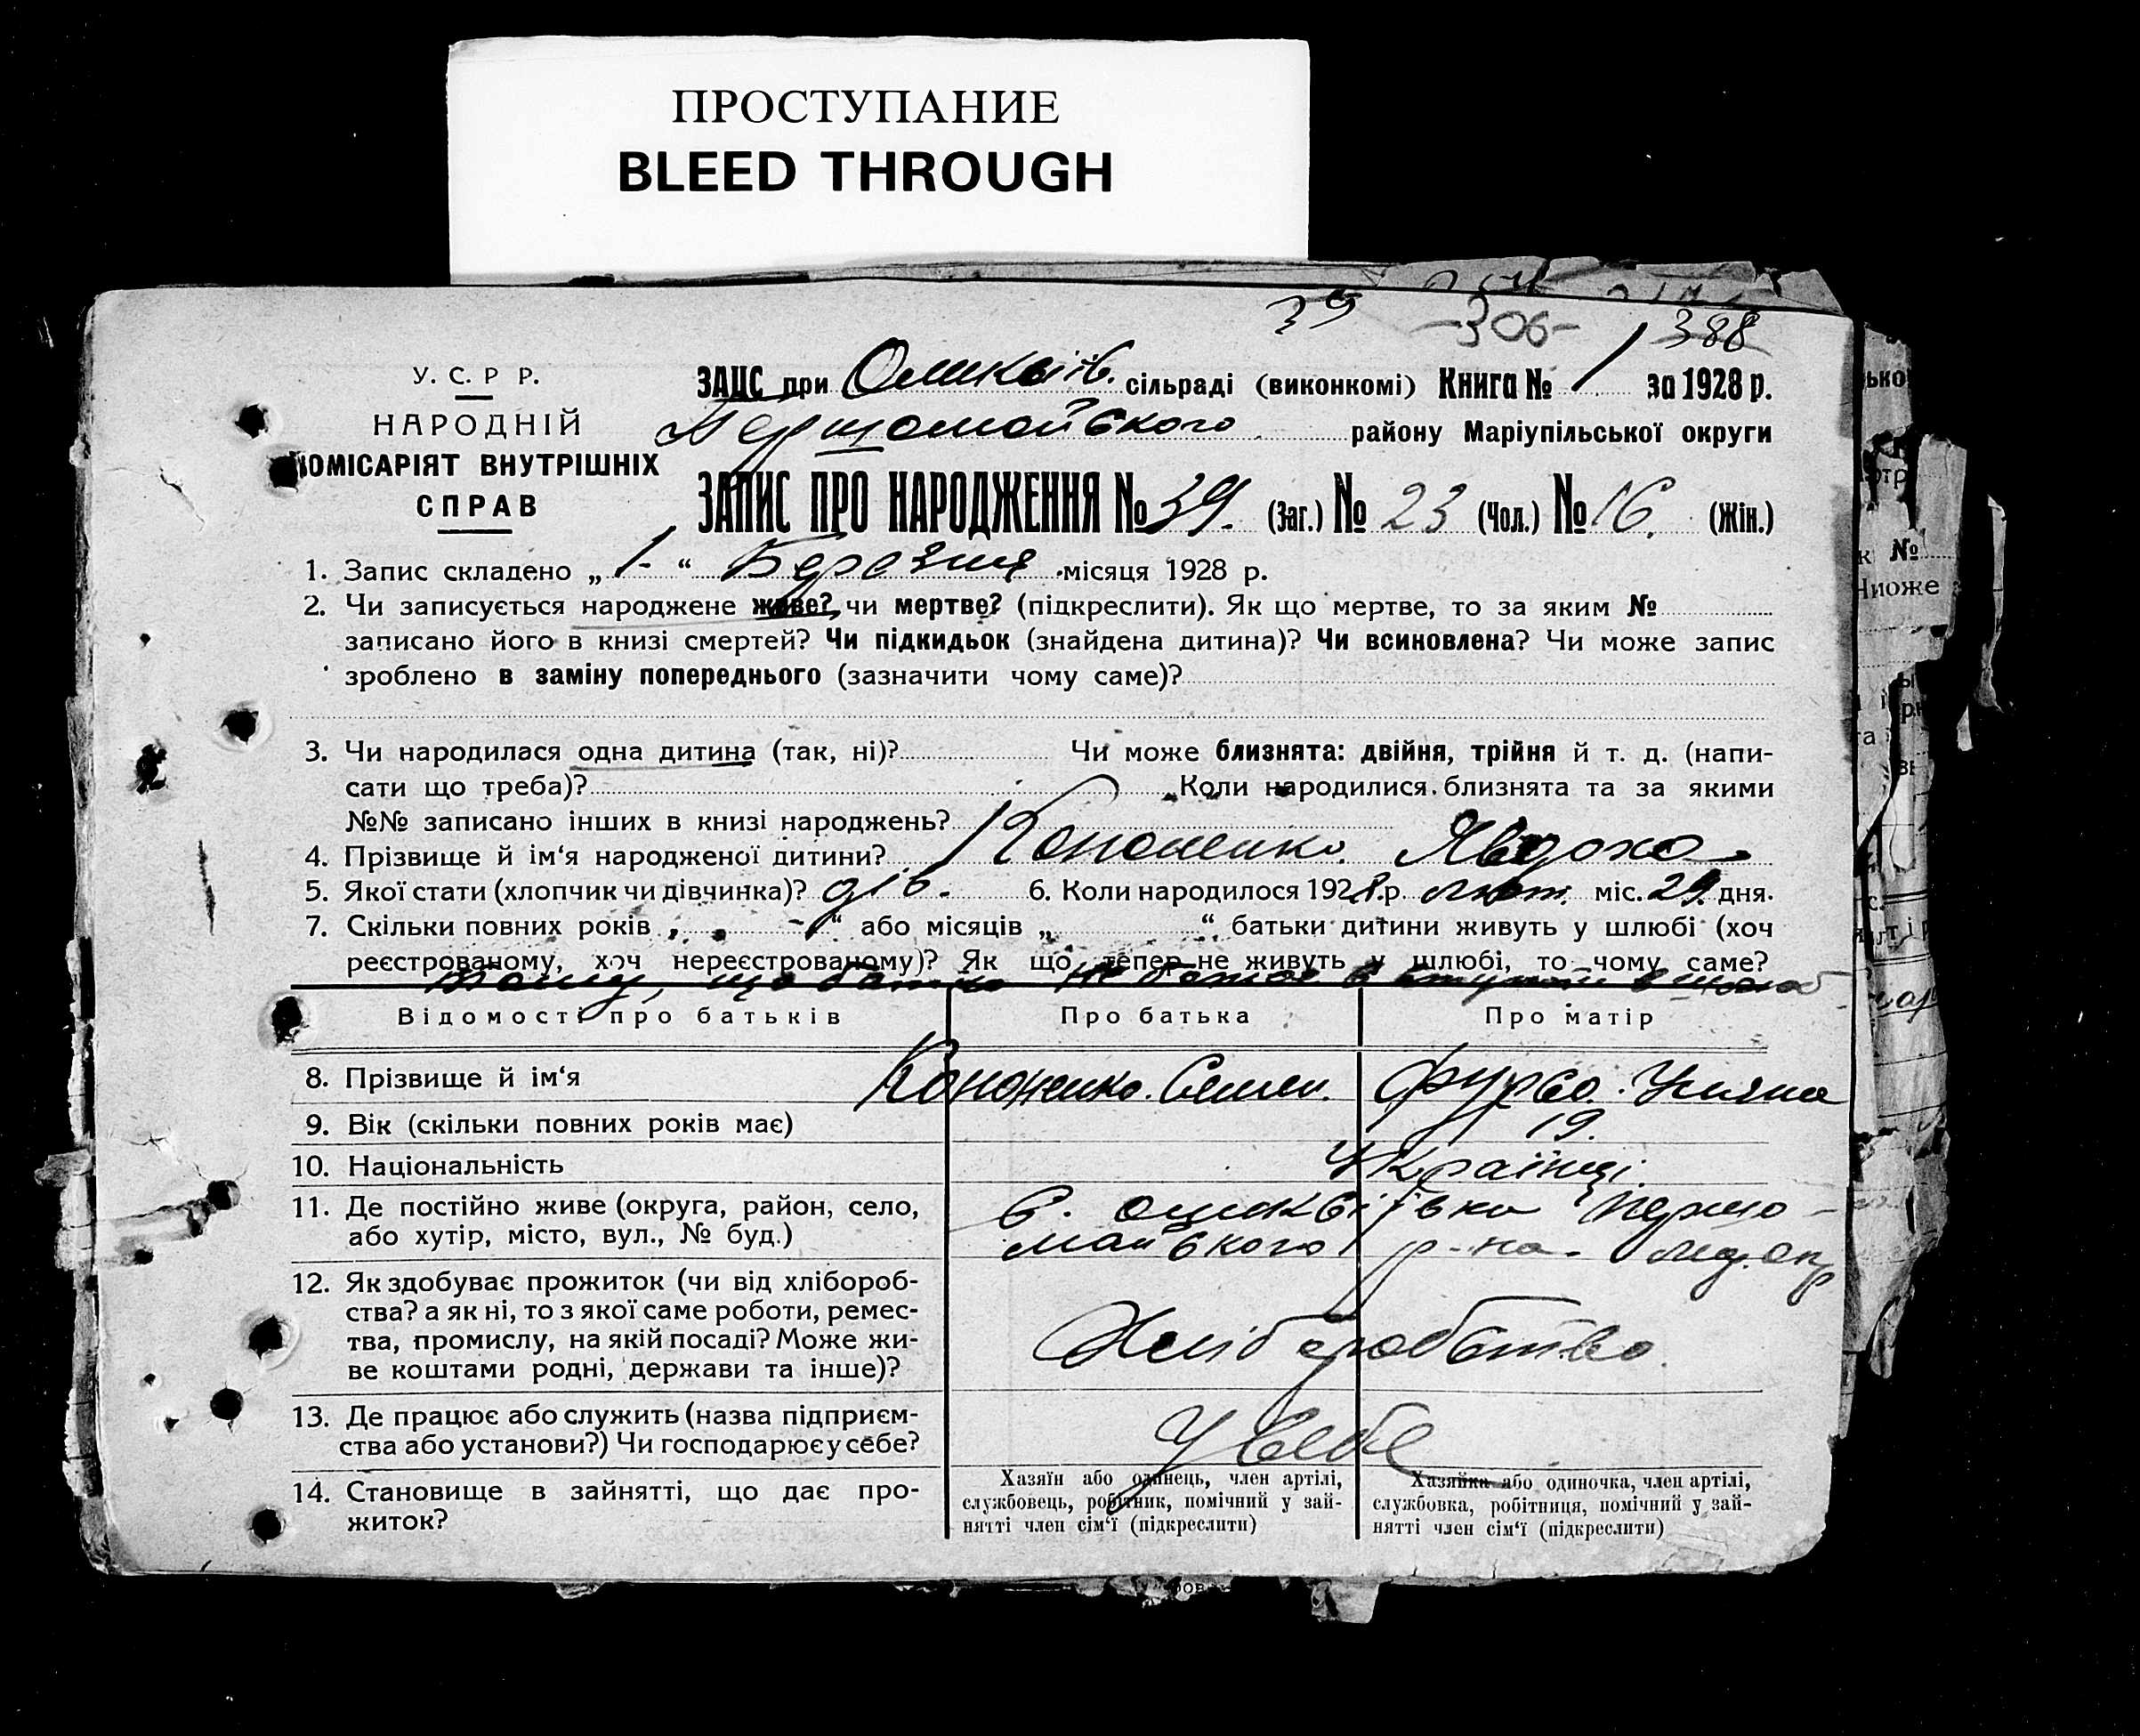 ПРОСТУПАНИЕ
BLEED THROUGH
39 -306- 388
У. С. Р Р.
НАРОДНІЙ
КОМІСАРІЯТ ВНУТРІШНІХ
СПРАВ
ЗАЦС при сільраді (виконкомі) Книга № 1 за 1928 р.
Першомайського району Маріупільської округи
ЗАПИС ПРО НАРОДЖЕННЯ № 39. (Заг.) № 23 (Чол.) № 16. (Жін.)
1. Запис складено „1-“ Березня місяця 1928 р.
2. Чи записується народжене живе? чи мертве? (підкреслити). Як що мертве, то за яким №
записано його в книзі смертей? Чи підкидьок (знайдена дитина)? Чи всиновлена? Чи може запис
зроблено в заміну попереднього (зазначити чому саме)?
3. Чи народилася одна дитина (так, ні)? Чи може близнята: двійня, трійня й т. д. (напи-
сати що треба)? Коли народилися близнята та за якими
№№ записано інших в книзі народжень?
4. Прізвище й ім‘я народженої дитини? Кононенко Явдоха
5. Якої стати (хлопчик чи дівчинка)? дів. 6. Коли народилося 1928 р. лют. міс. 29. дня.
7. Скільки повних років „ - “ або місяців „ “ батьки дитини живуть у шлюбі (хоч
реєстрованому, хоч нереєстрованому)? Як що тепер не живуть у шлюбі, то чому саме?
Тому, що батько не
Відомості про батьків Про батька Про матір
8. Прізвище й ім‘я Кононенко Семен. Фурсо Уляна
9. Вік (скільки повних років має) 19.
10. Національність Українці
11. Де постійно живе (округа, район, село, с. Першо-
або хутір, місто, вул., № буд.) майського р-на. окр
12. Як здобуває прожиток (чи від хлібороб-
ства? а як ні, то з якої саме роботи, ремес-
тва, промислу, на якій посаді? Може жи-
ве коштами родні, держави та інше)? Хліборобство.
13. Де працює або служить (назва підприєм-
ства або установи?) Чи господарює у себе? У себе
14. Становище в зайнятті, що дає про-
житок?
Хазяїн або одинець, член артілі,
службовець, робітник, помічний у зай-
нятті член сім‘ї (підкреслити)
Хазяйка або одиночка, член артілі,
службовка, робітниця, помічний у зай-
нятті член сім‘ї (підкреслити)